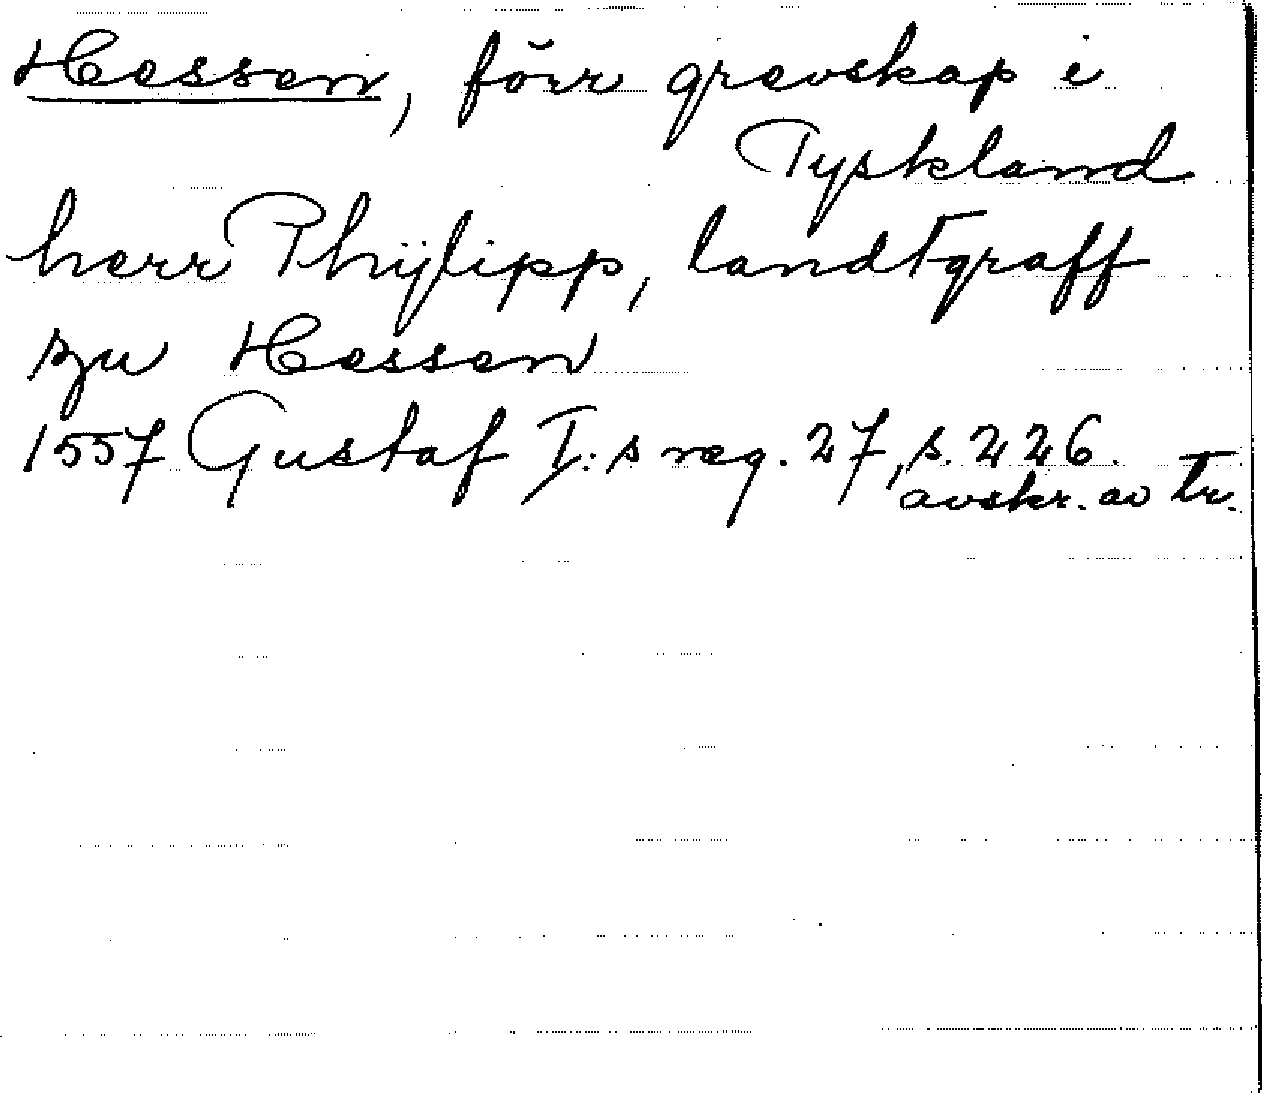 Hessen, förr grevskap i
Tyskland
herr Phÿlipp, landtgraff
zu Hessen
1557 Gustaf I:s reg. 27, s. 226.
avskr. av tr.